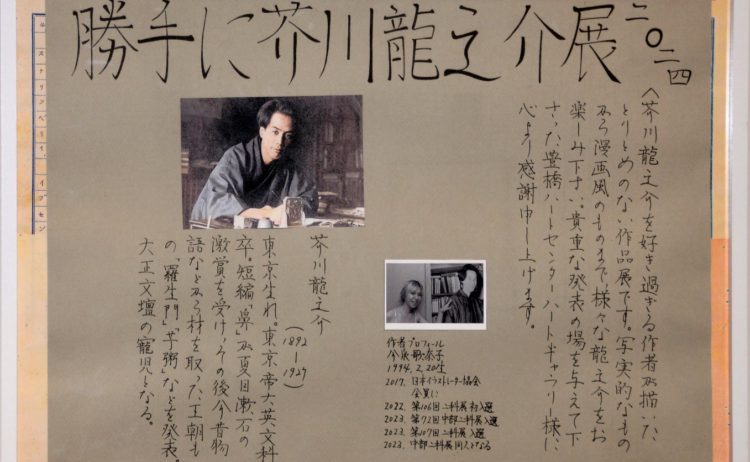 勝手に芥川龍之介展二〇二四
〈芥川龍之介を好き過ぎる作者が描いた
とりとめのない作品展です。写実的なもの
から漫画風のものまで、様々な龍之介をお
楽しみ下さい。貴重な発表の場を与えて下
さった豊橋ハートセンターハートギャラリー様に
心より感謝申し上げます。
芥川龍之介
(1892–1927)
東京生れ。東京帝大英文科
卒。短編「鼻」が夏目漱石の
激賞を受け、その後今昔物
語などから材を取った王朝も
の「羅生門」「芋粥」などを発表。
大正文壇の寵児となる。
作者プロフィール
今泉
1994. 2. 20生
2017. 日本イラストレーター協会
会員に
2022. 第106回二科展初入選
2023. 第72回中部二科展入選
2023. 第107回二科展入選
2023. 中部二科展同人となる
イプセン